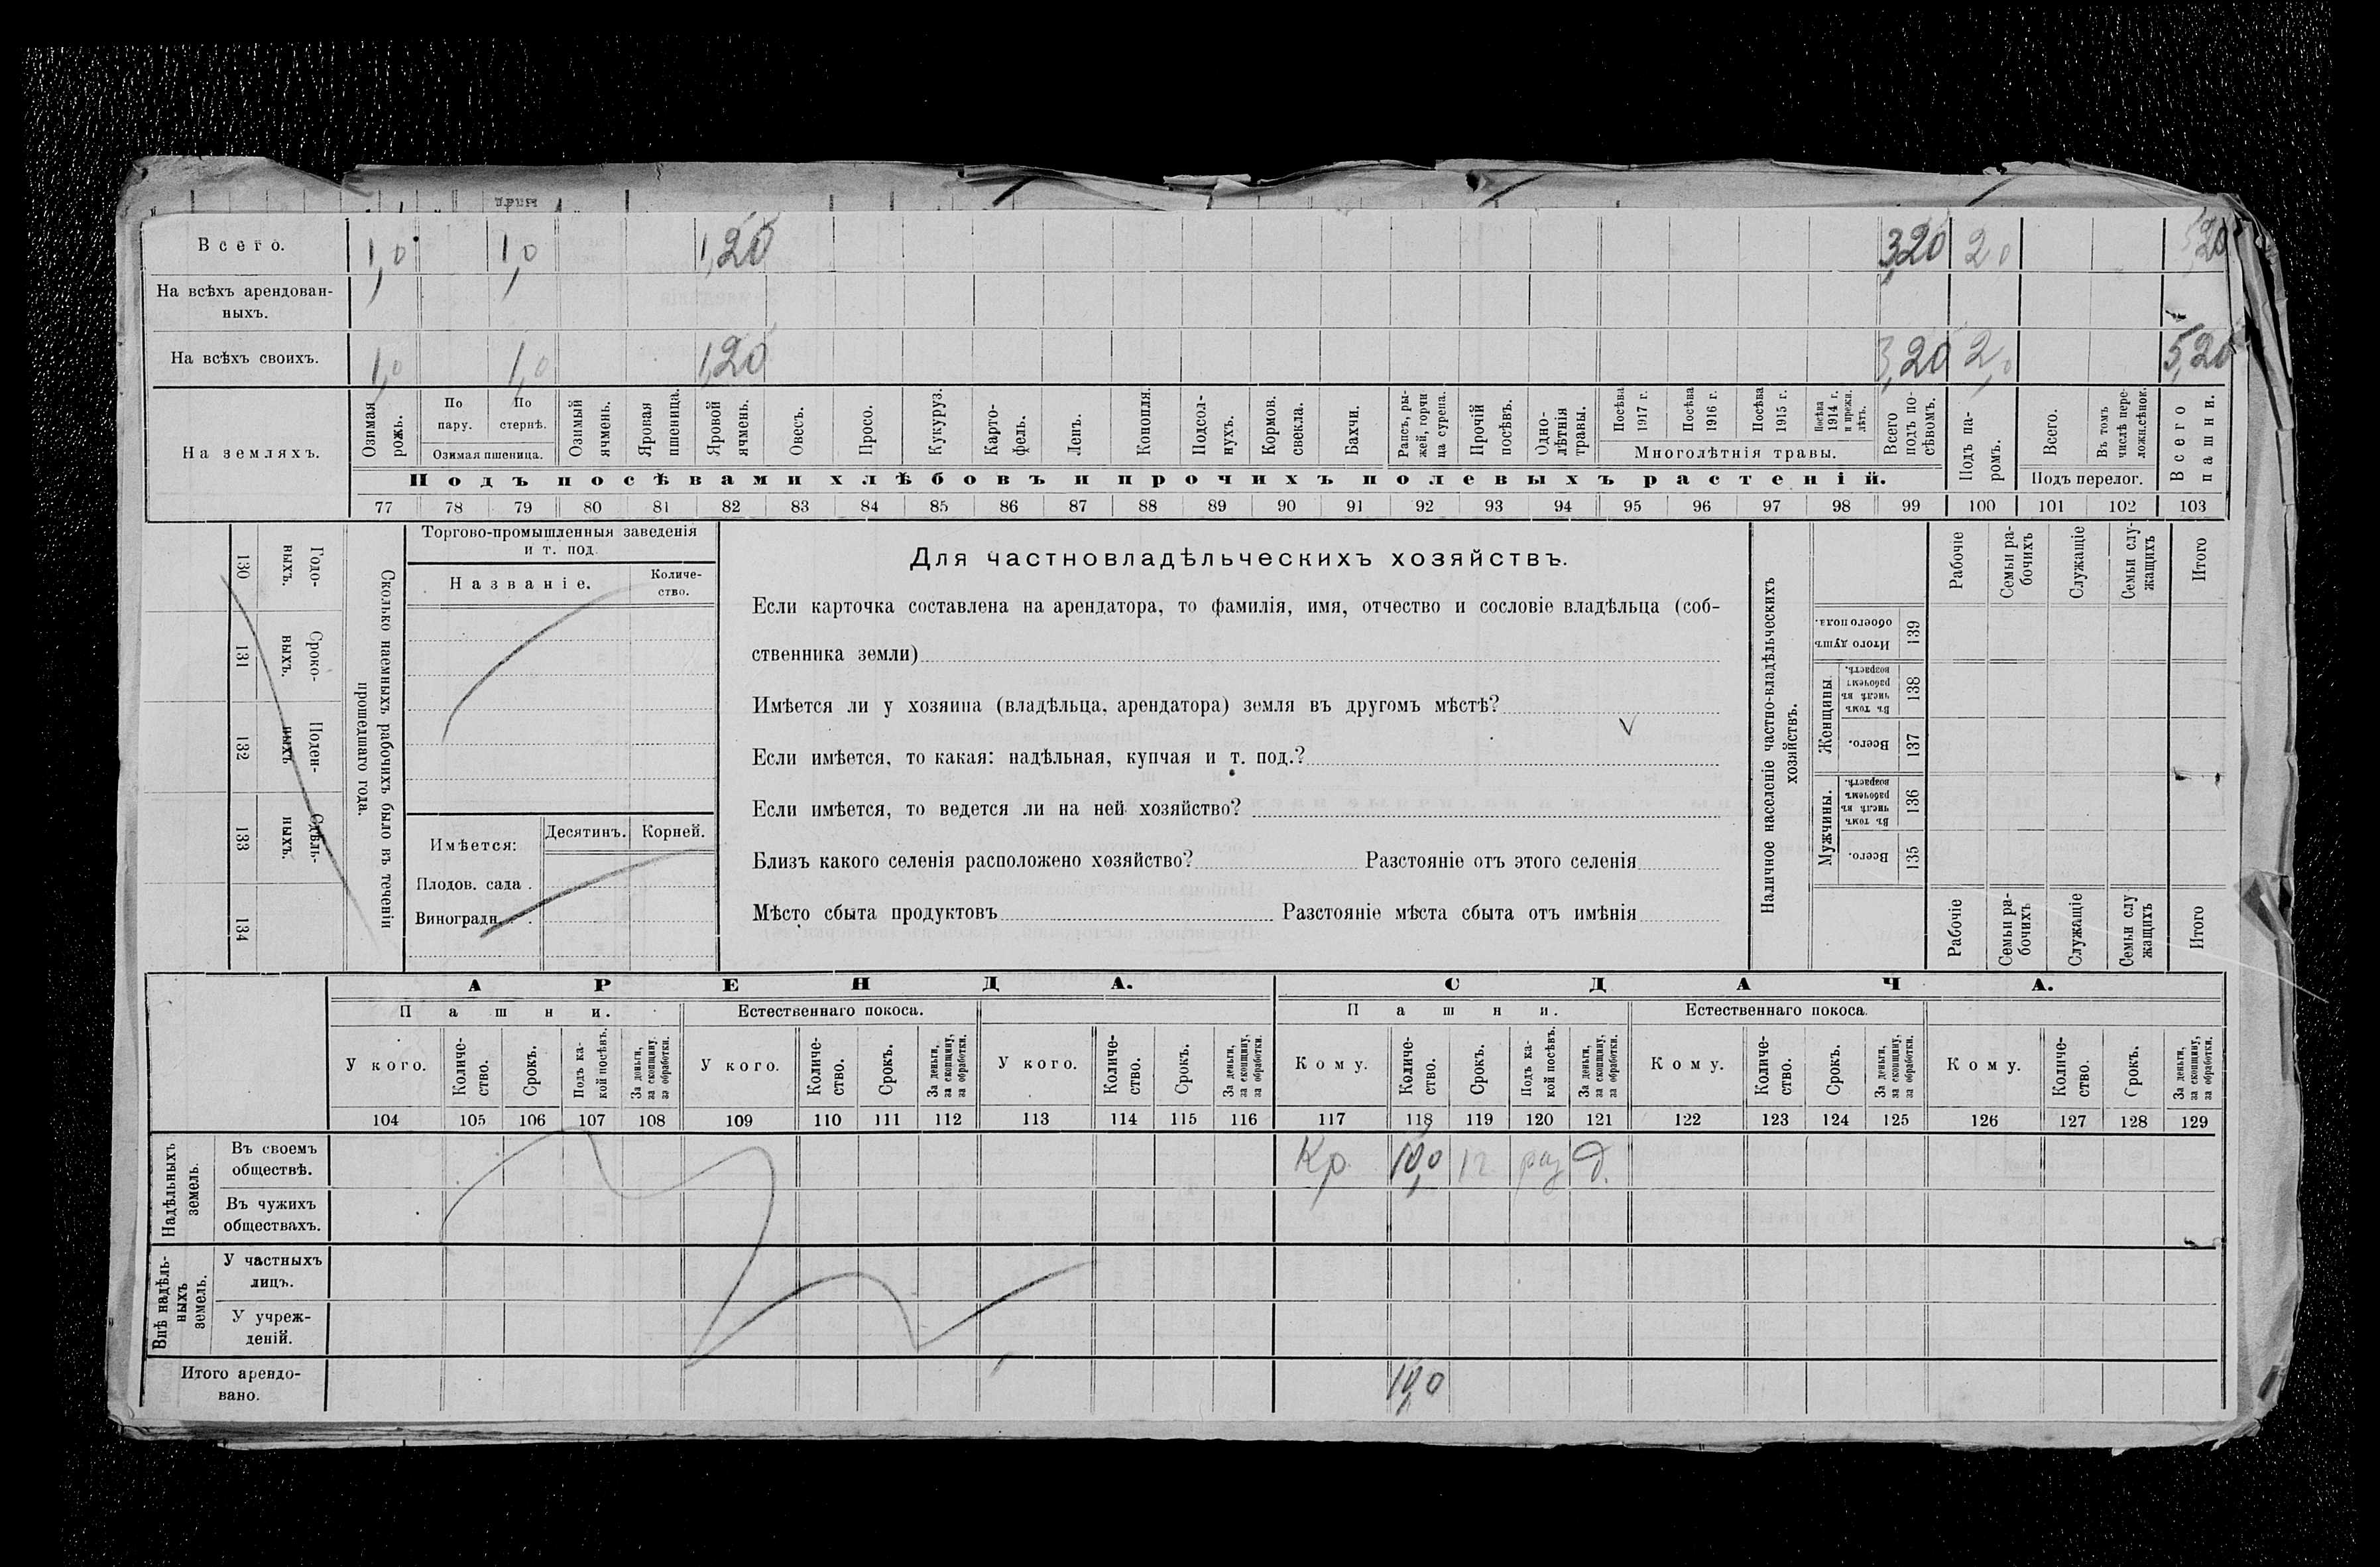 Всего. 1,0 1,0 1,20 3,20 2,0 5,20
На всѣхъ арендован-
ныхъ.
На всѣхъ своихъ. 1,0 1,0 1,20 3,20 2,0 5,20
На земляхъ.
Озимая рожь.
По пару.
По стернѣ.
Озимая пшеница.
Озимый ячмень.
Яровая пшеница.
Яровой ячмень.
Овесъ.
Просо.
Кукуруз.
Карто-
фель.
Ленъ.
Конопля.
Подсол-
нухъ.
Кормов. свекла.
Бахчи.
Рапсъ, ры-
жей, горчи
ца сурепа.
Прочій посѣвъ.
Одно-
лѣтнія травы.
Посѣва 1917 г.
Посѣва 1916 г.
Посѣва 1915 г.
Посѣва 1914 г. и прежн. лѣтъ.
Многолѣтнія травы.
Всего подъ по-
сѣвомъ.
Подъ па-
ромъ.
Всего.
Въ томъ числѣ пере-
ложн.сѣнок.
Подъ перелог.
Всего пашни.
Подъ посѣвами хлѣбовъ и прочихъ полевыхъ растеній.
77 78 79 80 81 82 83 84 85 86 87 88 89 90 91 92 93 94 95 96 97 98 99 100 101 102 103
130 Годо-
ныхъ.
131 Сроко-
ныхъ.
132 Поден-
ныхъ
133 Сдѣль-
ныхъ.
134
Сколько наемныхъ рабочихъ было въ теченіи
прошедшаго года.
Торгово-промышленныя заведенія
и т. под.
Названіе. Количе-
ство.
Имѣется: Десятинъ. Корней.
Плодов. сада .
Виноградн. .
Для частновладѣльческихъ хозяйствъ.
Если карточка составлена на арендатора, то фамилія, имя, отчество и сословіе владѣльца (соб-
ственника земли)
Имѣется ли у хозяина (владѣльца, арендатора) земля въ другомъ мѣстѣ?
Если имѣется, то какая: надѣльная, купчая и т. под.?
Если имѣется, то ведется ли на ней хозяйство?
Близъ какого селенія расположено хозяйство? Разстояніе отъ этого селенія
Мѣсто сбыта продуктовъ Разстояніе мѣста сбыта отъ имѣнія
Наличное населеніе частно-владѣльческихъ
хозяйствъ.
Рабочіе
Семьи ра-
бочихъ
Служащіе
Семьи слу-
жащихъ
Итого
Итого душъ обоего пола. 139
Женщины.
Въ томъ числѣ въ рабочемъ возрастѣ. 138
Всего. 137
Мужчины.
Въ томъ числѣ въ рабочемъ возрастѣ. 136
Всего. 135
Рабочіе
Семьи ра-
бочихъ
Служащіе
Семьи слу
жащихъ
Итого
АРЕНДА. СДАЧА.
Пашни. Естественнаго покоса. Пашни. Естественнаго покоса.
У кого. Количе-
ство. Срокъ. Подъ ка-
кой посѣвъ. За деньги, за скопщину. за обработки.
У кого. Количе-
ство. Срокъ. За деньги, за скопщину, за обработки.
У кого. Количе-
ство. Срокъ. За деньги, за скопщину, за обработки.
Кому. Количе-
ство. Срокъ. Подъ ка-
кой посѣвъ. За деньги, за скопщину, за обработки.
Кому. Количе-
ство. Срокъ. За деньги, за скопщину, за обработки.
Кому. Количе-
ство. Срокъ. За деньги, за скопщину, за обработки.
104 105 106 107 108 109 110 111 112 113 114 115 116 117 118 119 120 121 122 123 124 125 126 127 128 129
Надѣльныхъ земель.
Въ своемъ
обществѣ. Кр. 10,0 1г раз д.
Въ чужихъ
обществахъ.
Внѣ надѣль-
ныхъ земель.
У частныхъ
лицъ.
У учреж-
деній.
Итого арендо-
вано. 10,0